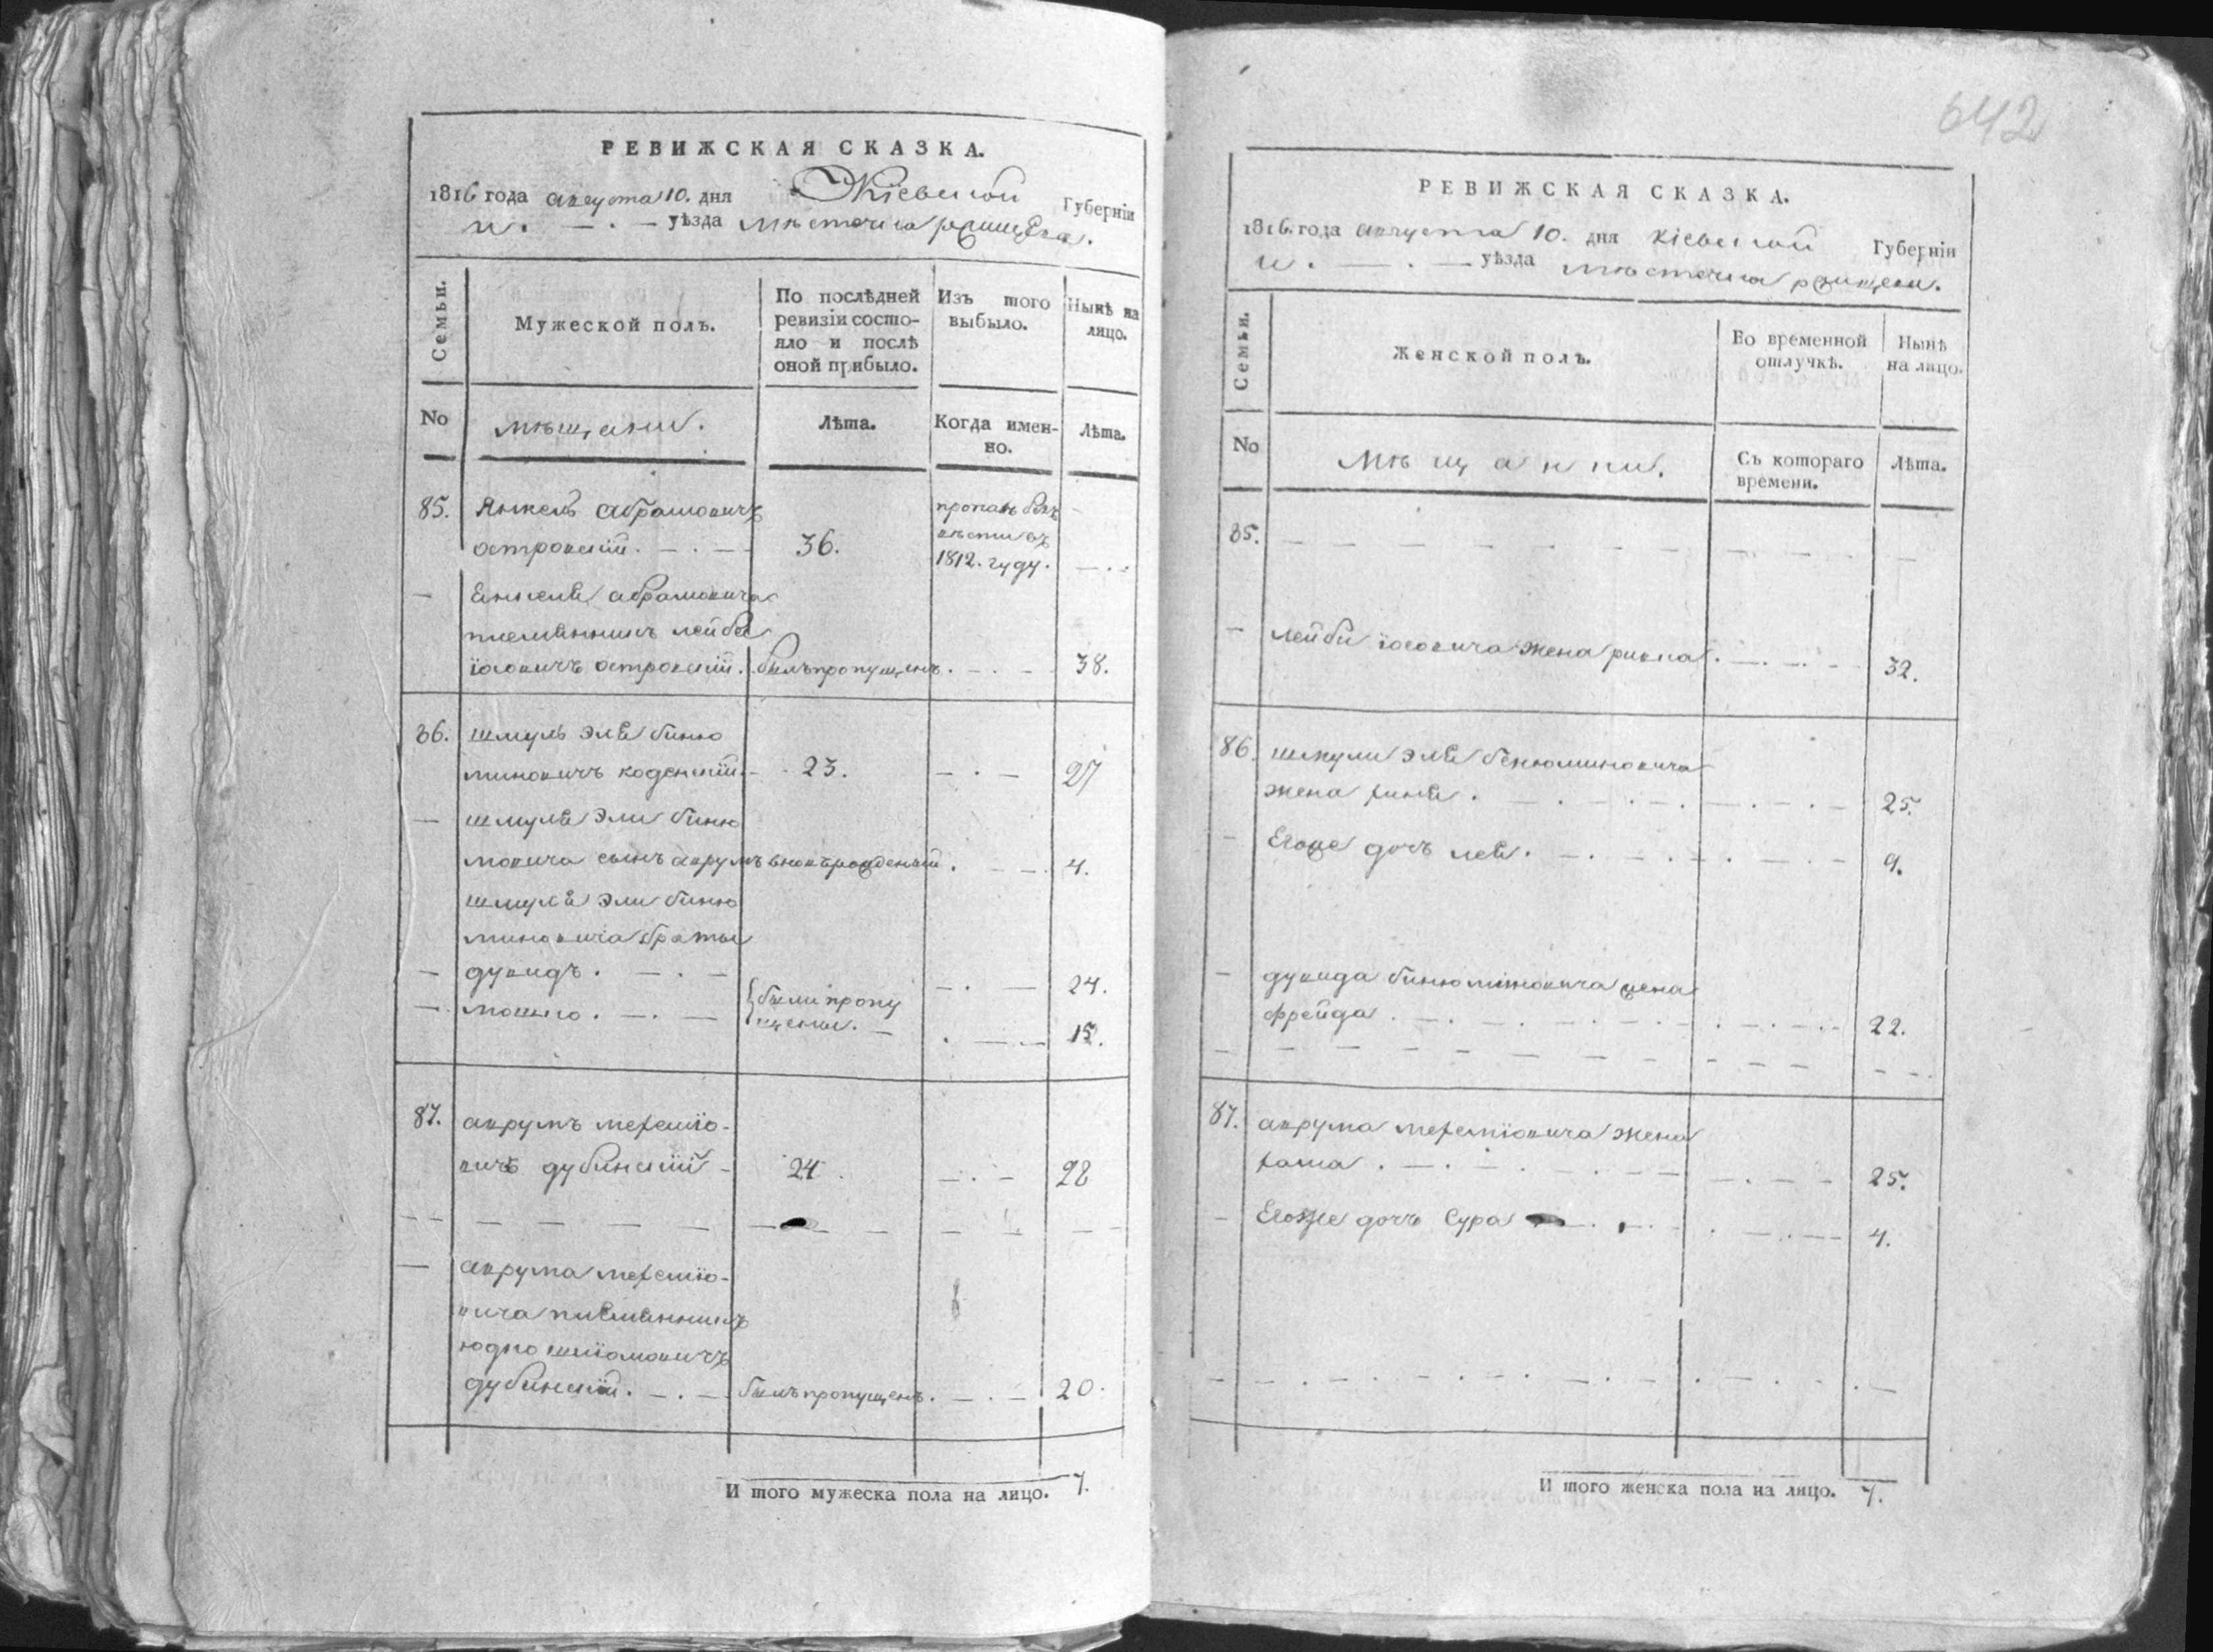 РЕВИЖСКАЯ СКАЗКА.
1816 года августа 10. дня Кіевской Губерніи
и. — . — уѣзда мѣстечка
Семьи.
Мужеской полъ.
По послѣдней ревизіи состояло и послѣ оной прибыло.
Изъ того выбыло.
Нынѣ на лицо.
No
мѣщани.
Лѣта.
Когда именно.
Лѣта.
85. Янкель абрамовичъ пропалъ безъ
островскій. — . — 36. вѣсти въ
1812. году. — . .
— Енкеля абрамовича
племянникъ лейба
іосовичъ островскій. былъ пропущенъ. — . — 38.
86. шмуль эля биню
миновичъ коденскій. — 23. — . — 27
— шмуля эли биню
мовича сынъ аврумъ вновьрожденый. — — 4.
шмуля эли биню
миновича братья
— дувидъ. — . — — . — 24.
— мошко. — . — были пропу
щены. — . — — 15.
87. аврумъ
вичъ дубинскій — 24. — . — 28
— — — — — — — — — — — — —
— аврума
вича племянникъ
юдко шліомовичъ
дубинскій. — . — былъ пропущенъ. — . — 20.
И того мужеска пола на лицо. 7.
642
РЕВИЖСКАЯ СКАЗКА.
1816. года августа 10. дня кіевской Губерніи
и. — . — уѣзда мѣстечка
Семьи.
Женской полъ.
Во временной отлучкѣ.
Нынѣ на лицо.
No
Мѣщанки.
Съ котораго времени.
Лѣта.
85. — — — — — — — — — — . —
— лейби іосовича жена ривка. — . — . — 32.
86. шмули эля бенюминовича
жена . — . — . — . — . — 25.
— Егоже дочь лея. — . — . — . — 9.
— дувида бинюминовича жена
фрейда. — . — . — . — . — 22.
— — — — — — — — — — — — —
87. аврума жена
. — . — . — . — — 25.
— Егоже дочь Сура — . — . — . — 4.
— — . — . — . — . — . — . —
И того женска пола на лицо. 7.